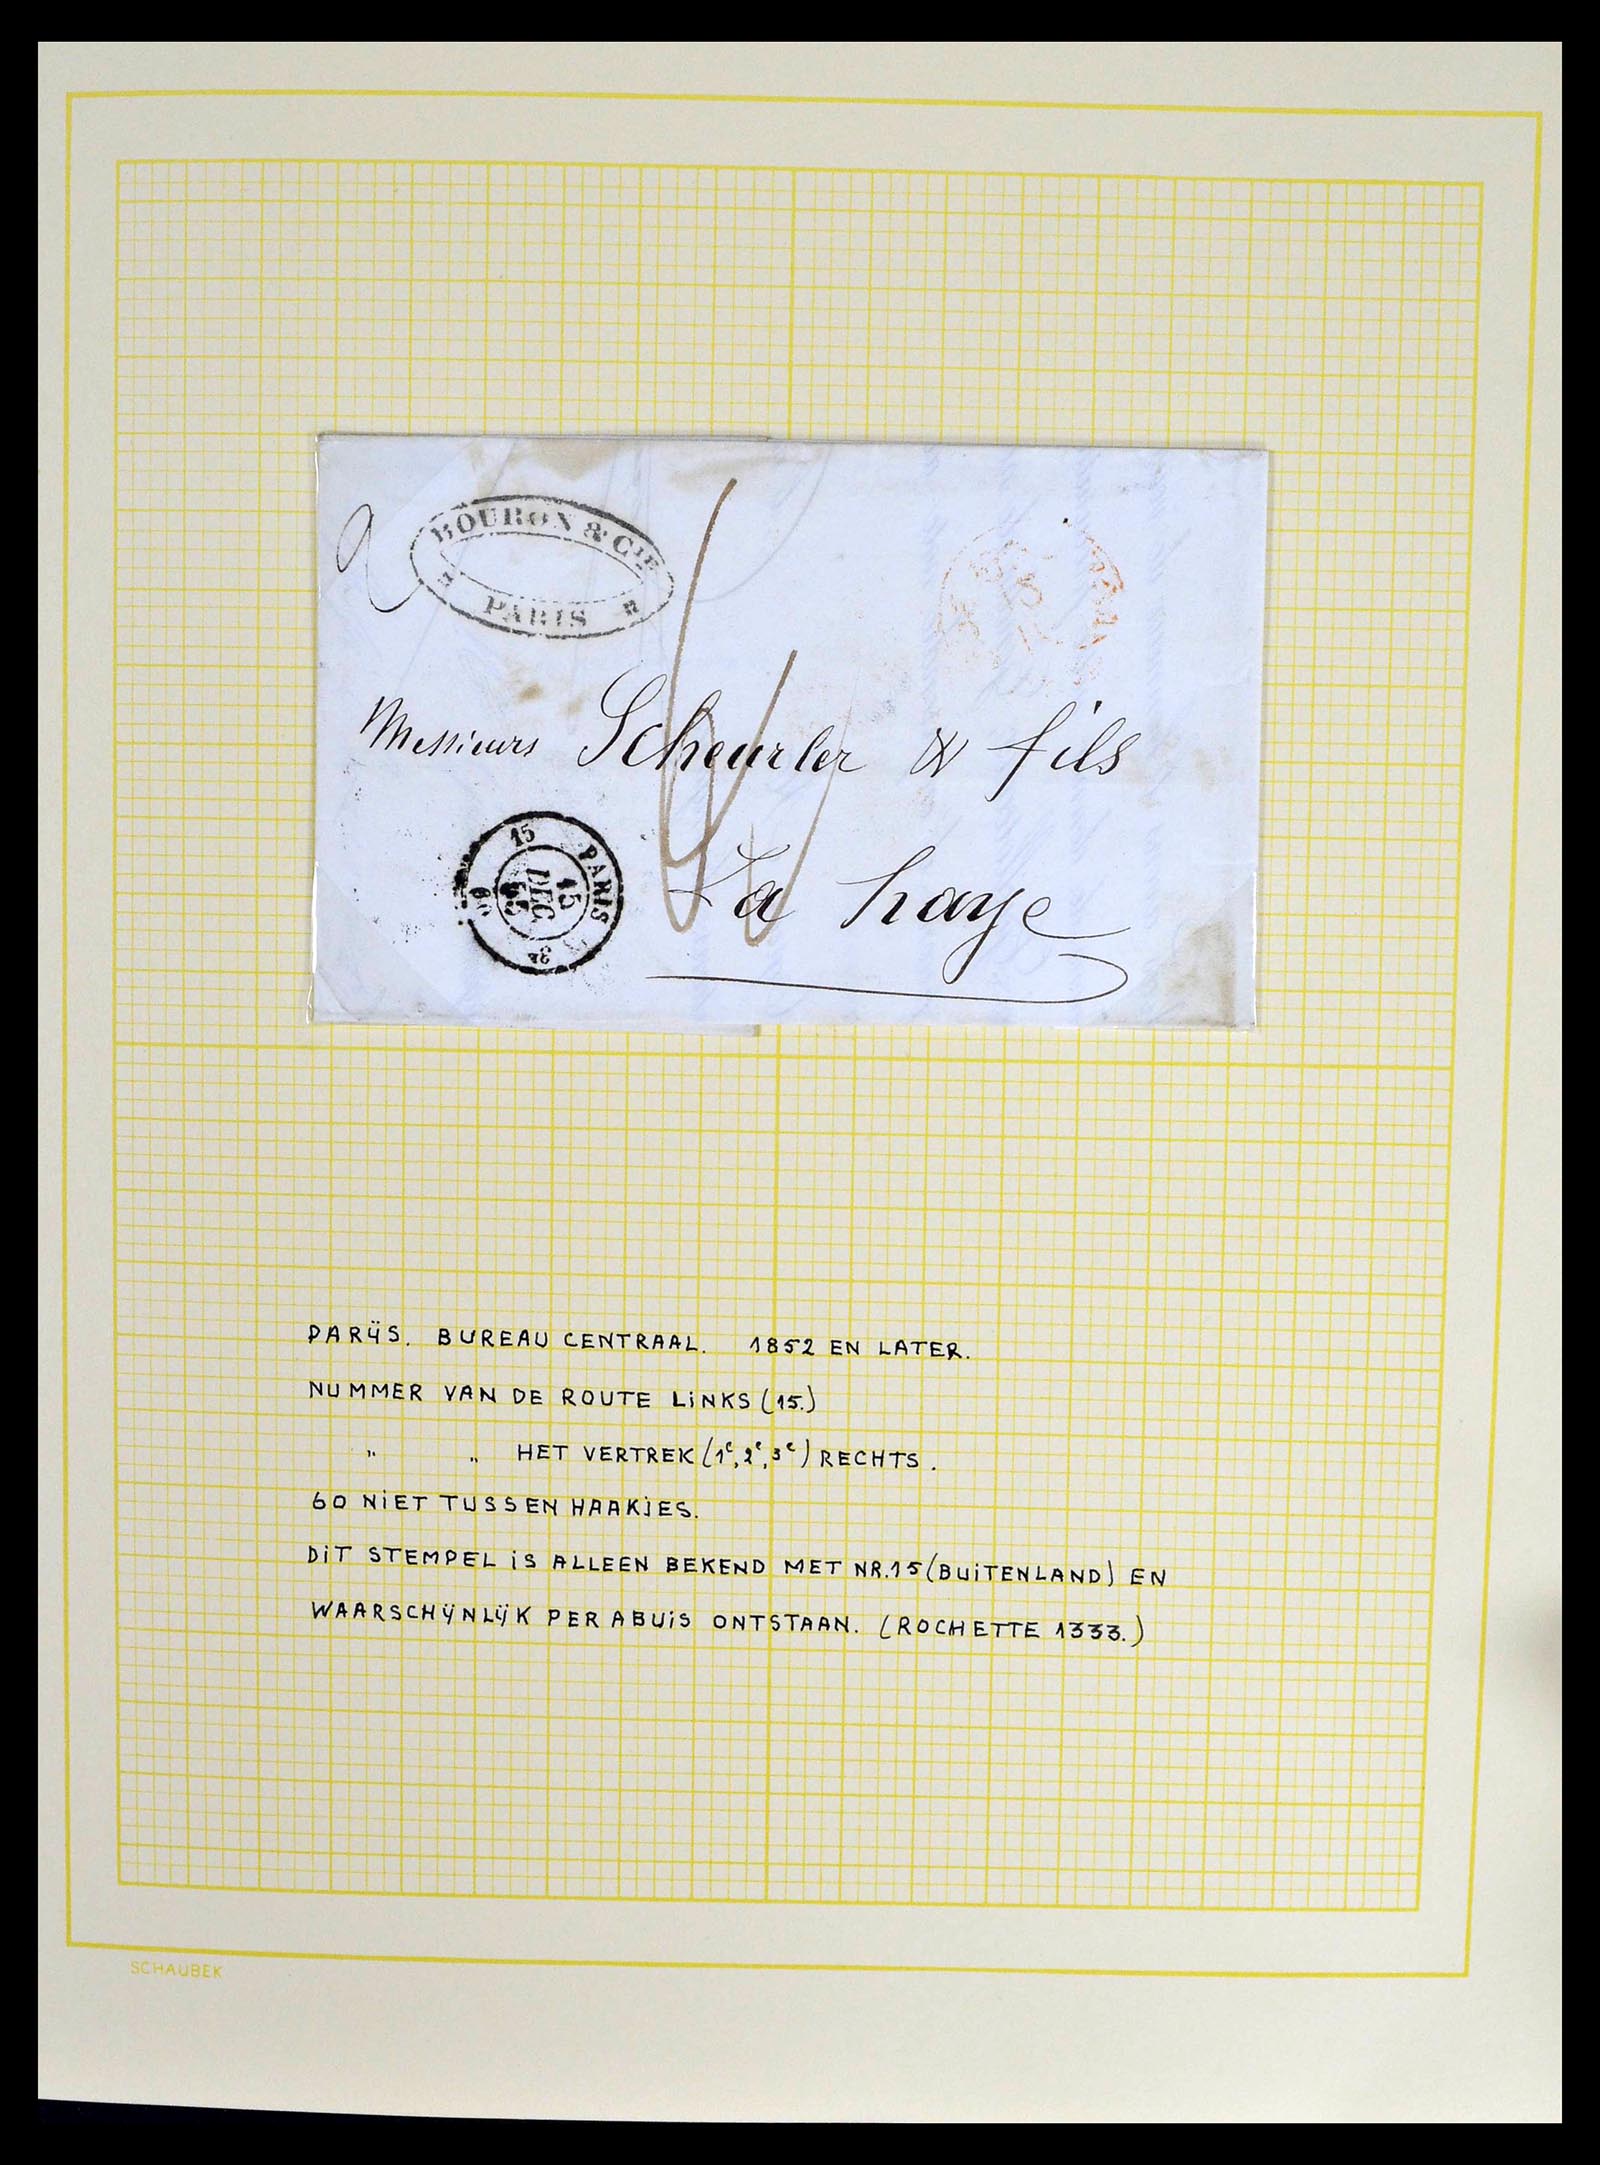 BOURON & CIE
PARIS
Messieurs Scheurler & fils
La haye
PARIS
15
15
DEC
55
3e
60
PARIJS. BUREAU CENTRAAL. 1852 EN LATER.
NUMMER VAN DE ROUTE LINKS (15.)
" " HET VERTREK (1e, 2e, 3e) RECHTS.
60 NIET TUSSEN HAAKJES.
DIT STEMPEL IS ALLEEN BEKEND MET NR.15 (BUITENLAND) EN
WAARSCHIJNLIJK PER ABUIS ONTSTAAN. (ROCHETTE 1333.)
SCHAUBEK